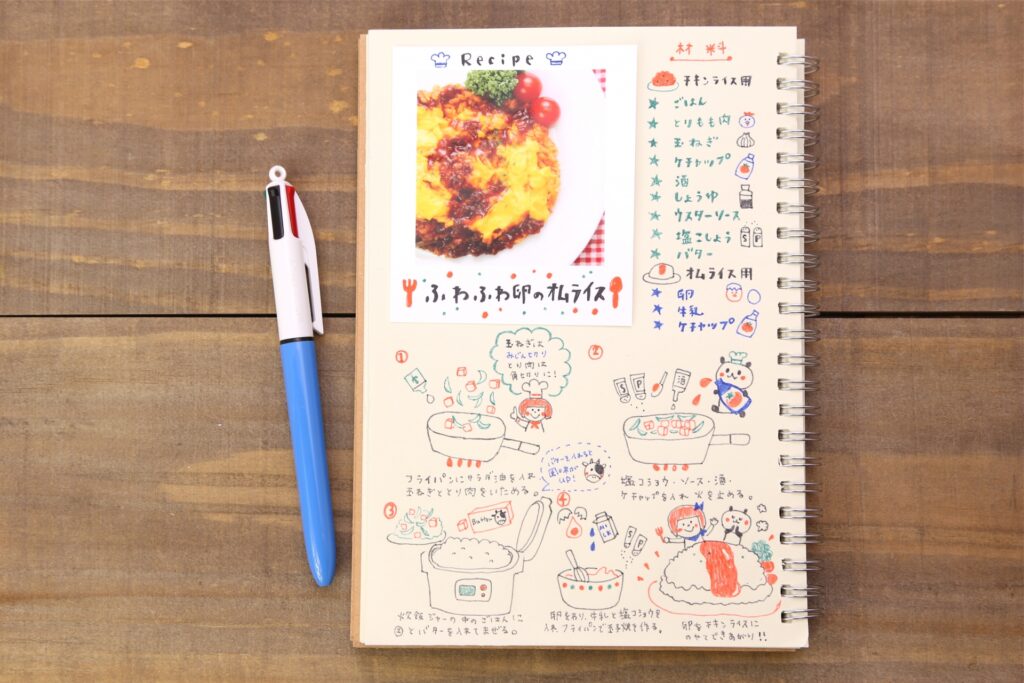 Recipe
ふわふわ卵のオムライス
材料
チキンライス用
ごはん
とりもも肉
玉ねぎ
ケチャップ
酒
しょうゆ
ウスターソース
塩こしょう
S P
バター
オムライス用
卵
牛乳
ケチャップ
①
玉ねぎは
みじん切り
とり肉は
角切りに!
フライパンにサラダ油を入れ
玉ねぎととり肉をいためる。
②
S P 酒
塩コショウ・ソース・酒・
ケチャップを入れ火を止める。
バターを入れると
風味が
UP!
③
Butter
炊飯ジャーの中のごはんに
②とバターを入れてまぜる。
④
Milk
S P
卵をわり、牛乳と塩コショウを
入れフライパンで玉子焼を作る。
卵をチキンライスに
のせてできあがり!!